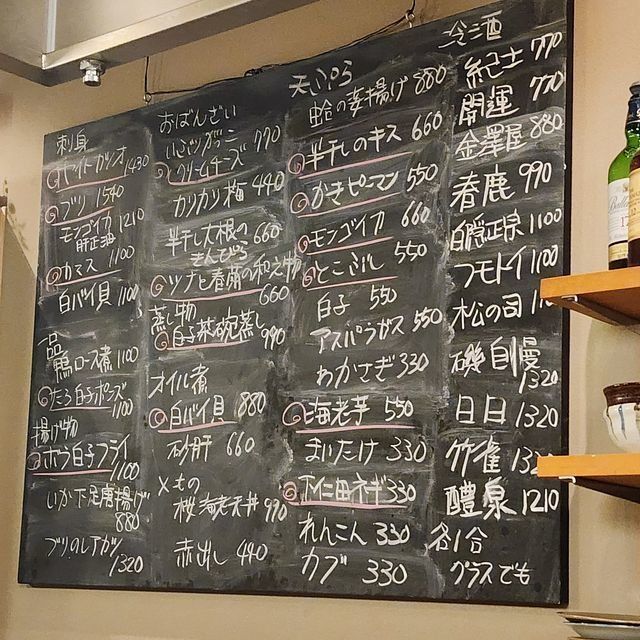 刺身
モイカツオ 1430
ブリ 1540
モンゴイカ 1210
肝正油
カマス 1100
白バイ貝 1100
一品
鴨ロース煮 1100
たら白子ポンズ 1100
揚げ物
ホウ白子フライ 1100
いか下足唐揚げ 880
ブリのレアカツ 1320
おばんざい
いぶりがっこ 770
クリームチーズ
カリカリ梅 440
半干し大根の 660
きんぴら
ツナと春菊の和え物 660
蒸し物
白子茶碗蒸し 990
オイル煮
白バイ貝 880
砂肝 660
〆もの
桜海老天丼 990
赤出し 440
天ぷら
蛤の姿揚げ 880
半干しのキス 660
かきピーマン 550
モンゴイカ 660
とこぶし 550
白子 550
アスパラガス 550
わかさぎ 330
海老芋 550
まいたけ 330
下仁田ネギ 330
れんこん 330
カブ 330
冷酒
紀土 770
開運 770
金澤屋 880
春鹿 990
白隠正宗 1100
フモトイ 1100
松の司 1100
磯自慢 1320
日日 1320
竹雀 1320
醴泉 1210
各1合
グラスでも